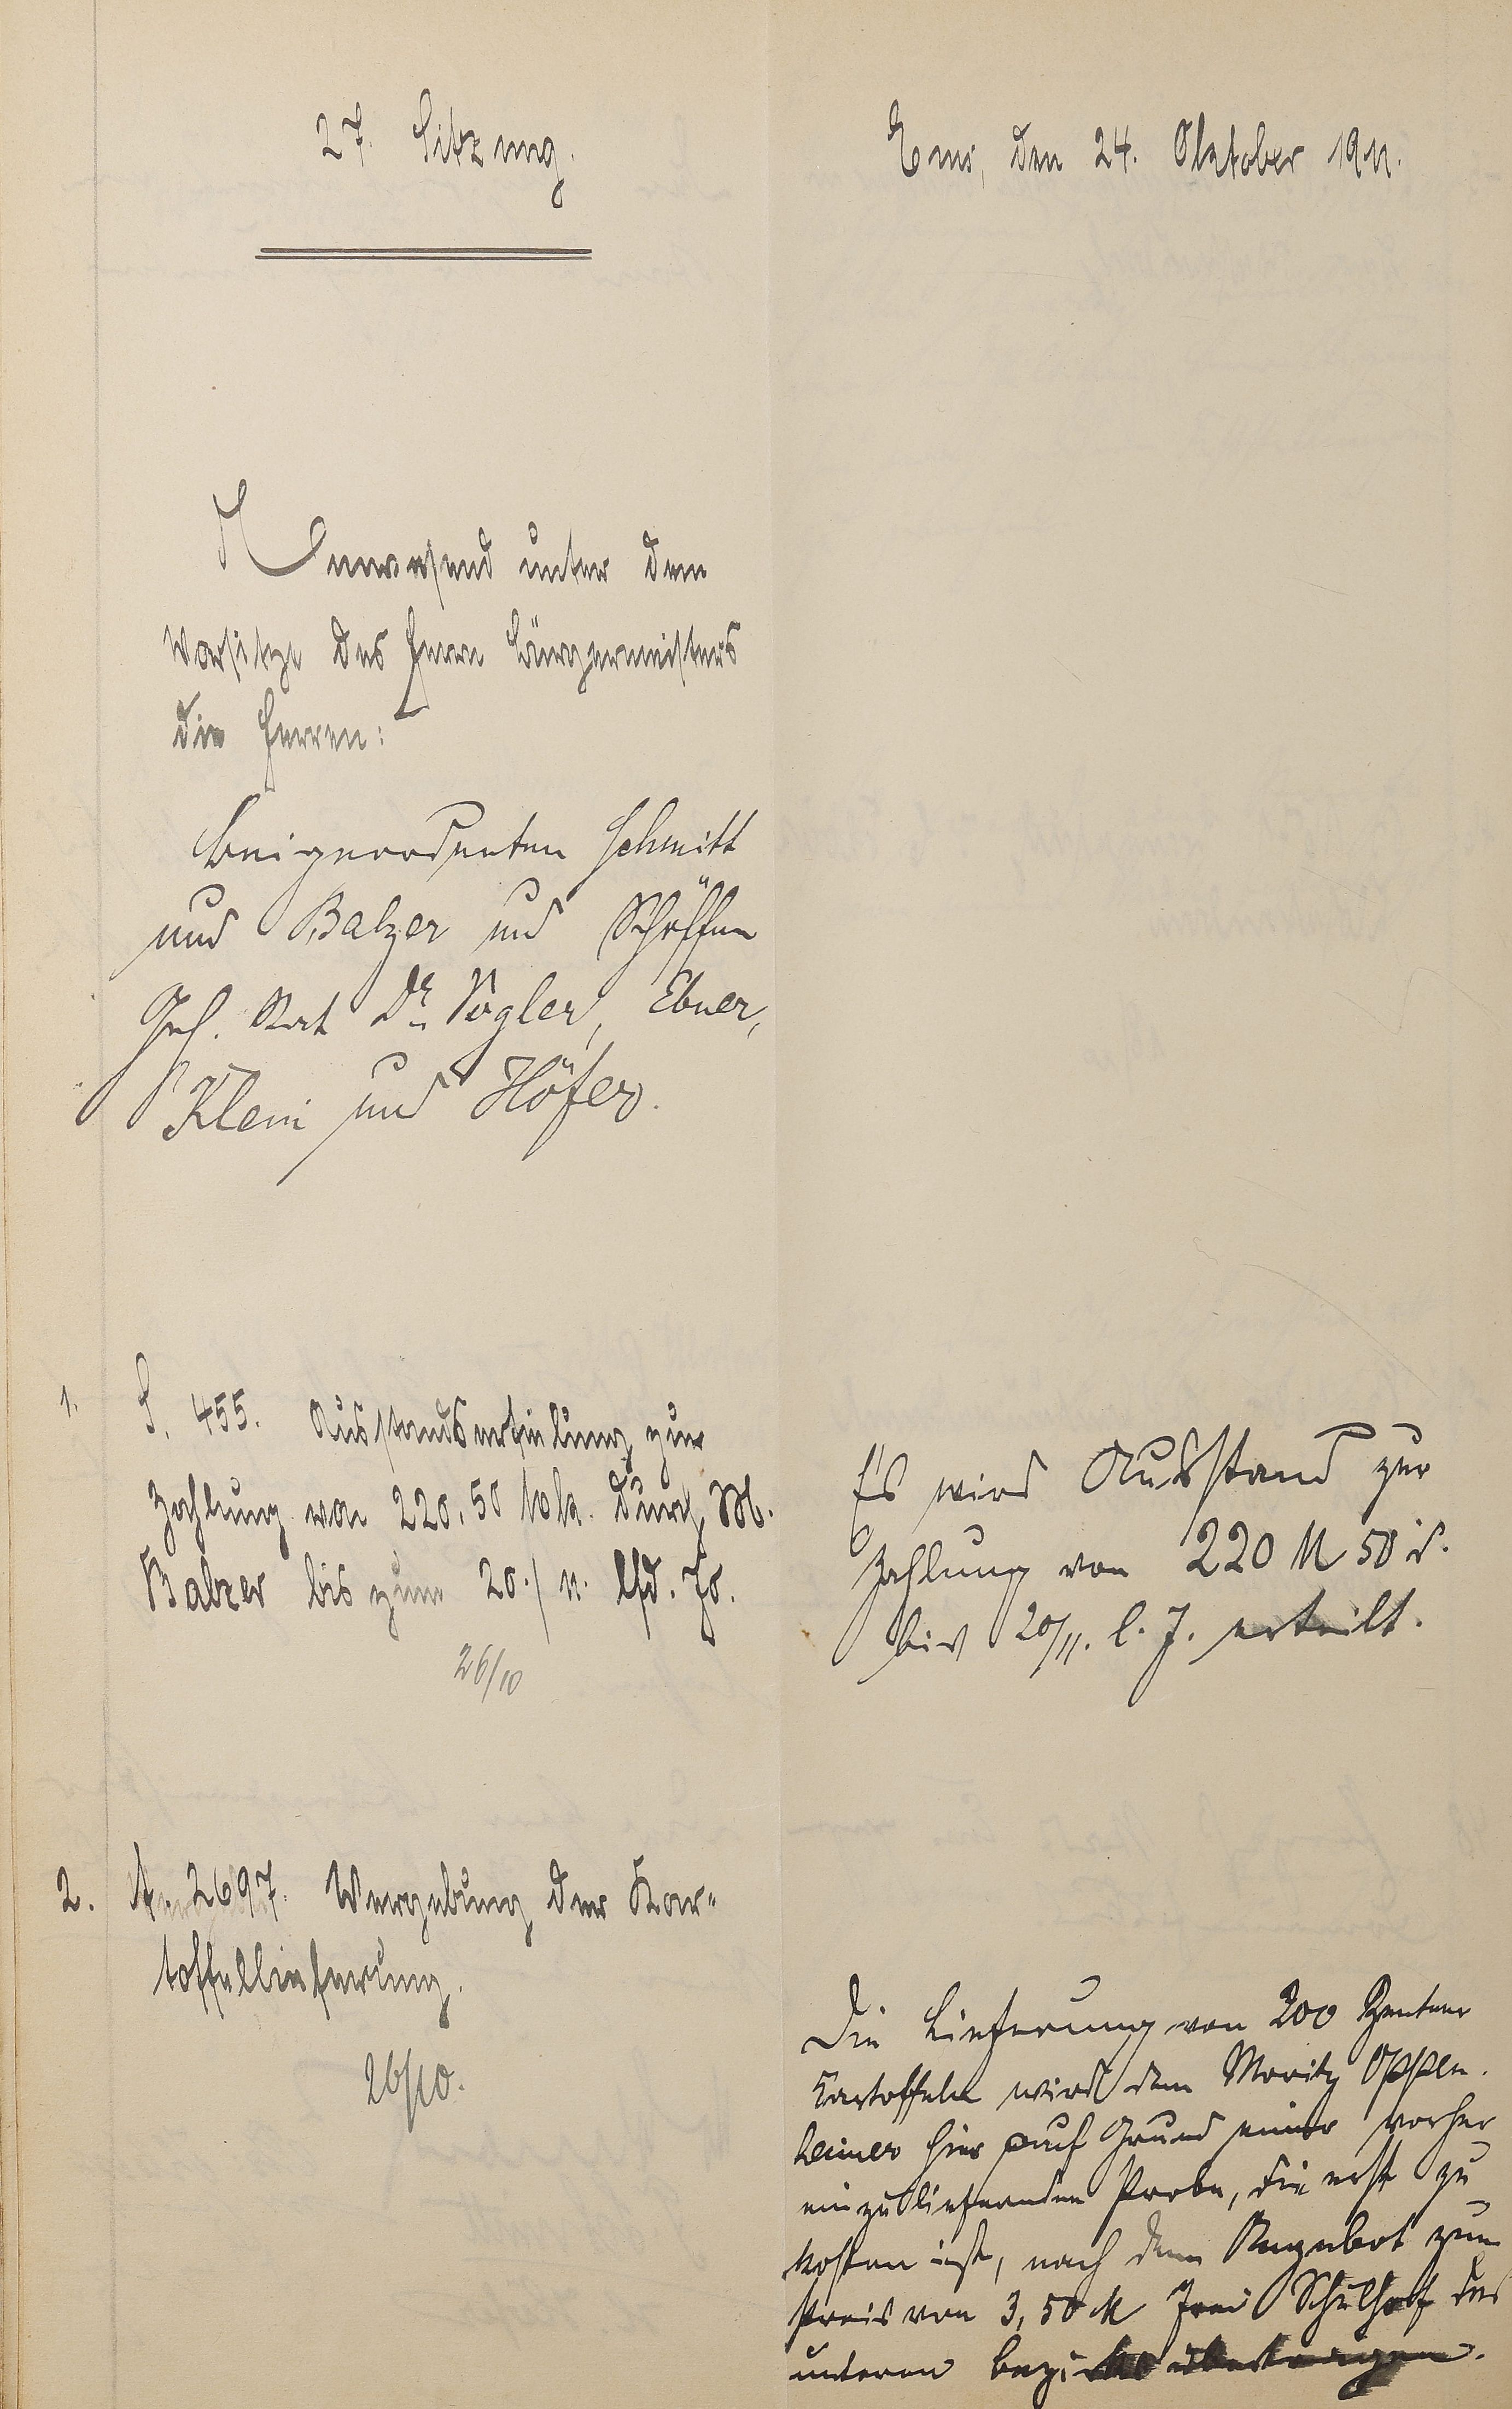 27. Sitzung.
Ems, den 24. Oktober 1911.
Anwesend unter dem
Vorsitze des Herrn Bürgermeisters
die Herren:
Beigeordneten Schmitt
und Balzer und Schöffen
Geh. Rat Dr. Vogler, Ebner,
Klein und Höfer.
1. S. 455. Ausstandserteilung zur
Zahlung von 220,50 Mk. durch M.
Balzer bis zum 20./11. lfd. Js.
26/10
Es wird Ausstand zur
Zahlung von 220 M 50 d.
bis 20/11. l. J. erteilt.
2. A. 2697. Vergebung der Kar-
toffellieferung.
26/10.
Die Lieferung von 200 Zentner
Kartoffeln wird dem Moritz Oppen-
heimer hier auf Grund einer vorher
einzuliefernden Probe, die erst zu
kosten ist, nach dem Angebot zum
Preis von 3,50 M frei Schulhof des
unteren Bezirks übertragen.